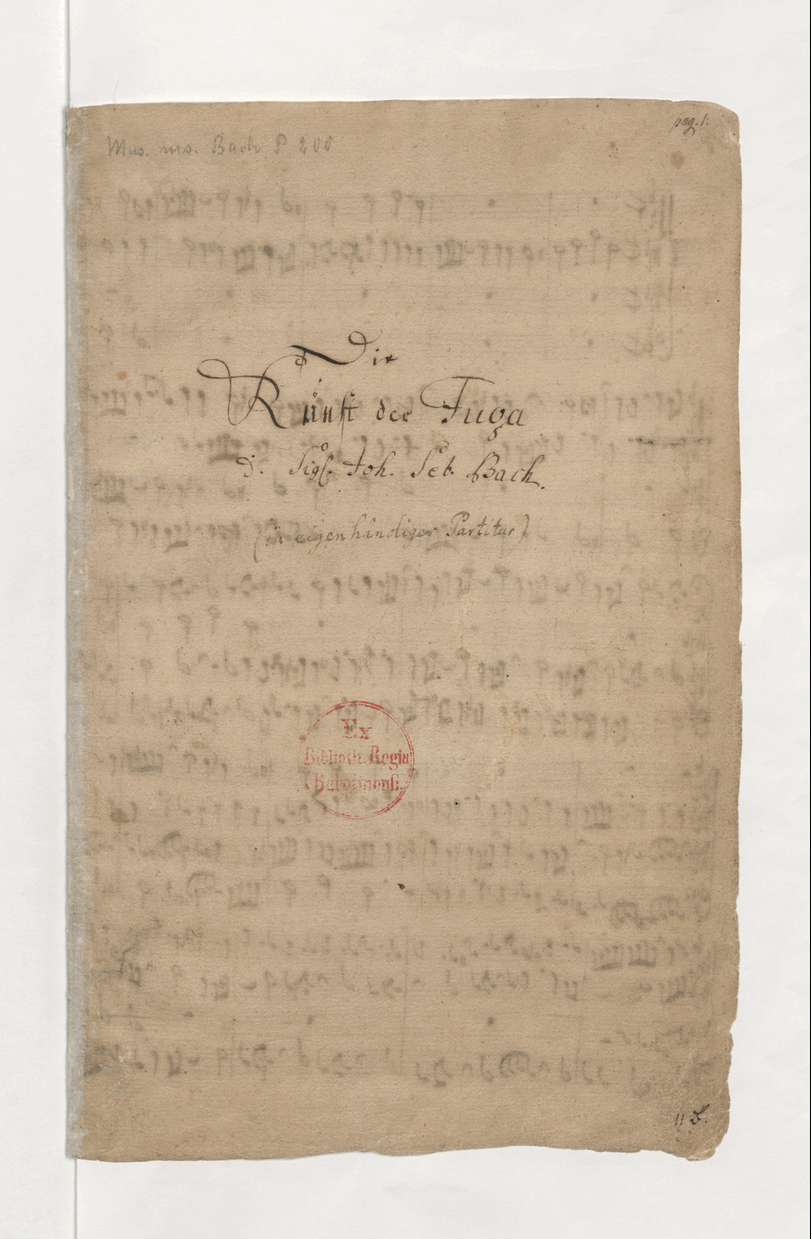 Mus. ms. Bach P 200
pag. 1.
Die
Kunst der Fuga
d. Sigl. Joh. Seb. Bach.
(in eigenhändiger Partitur)
Ex
Biblioth. Regia
Berolinensi.